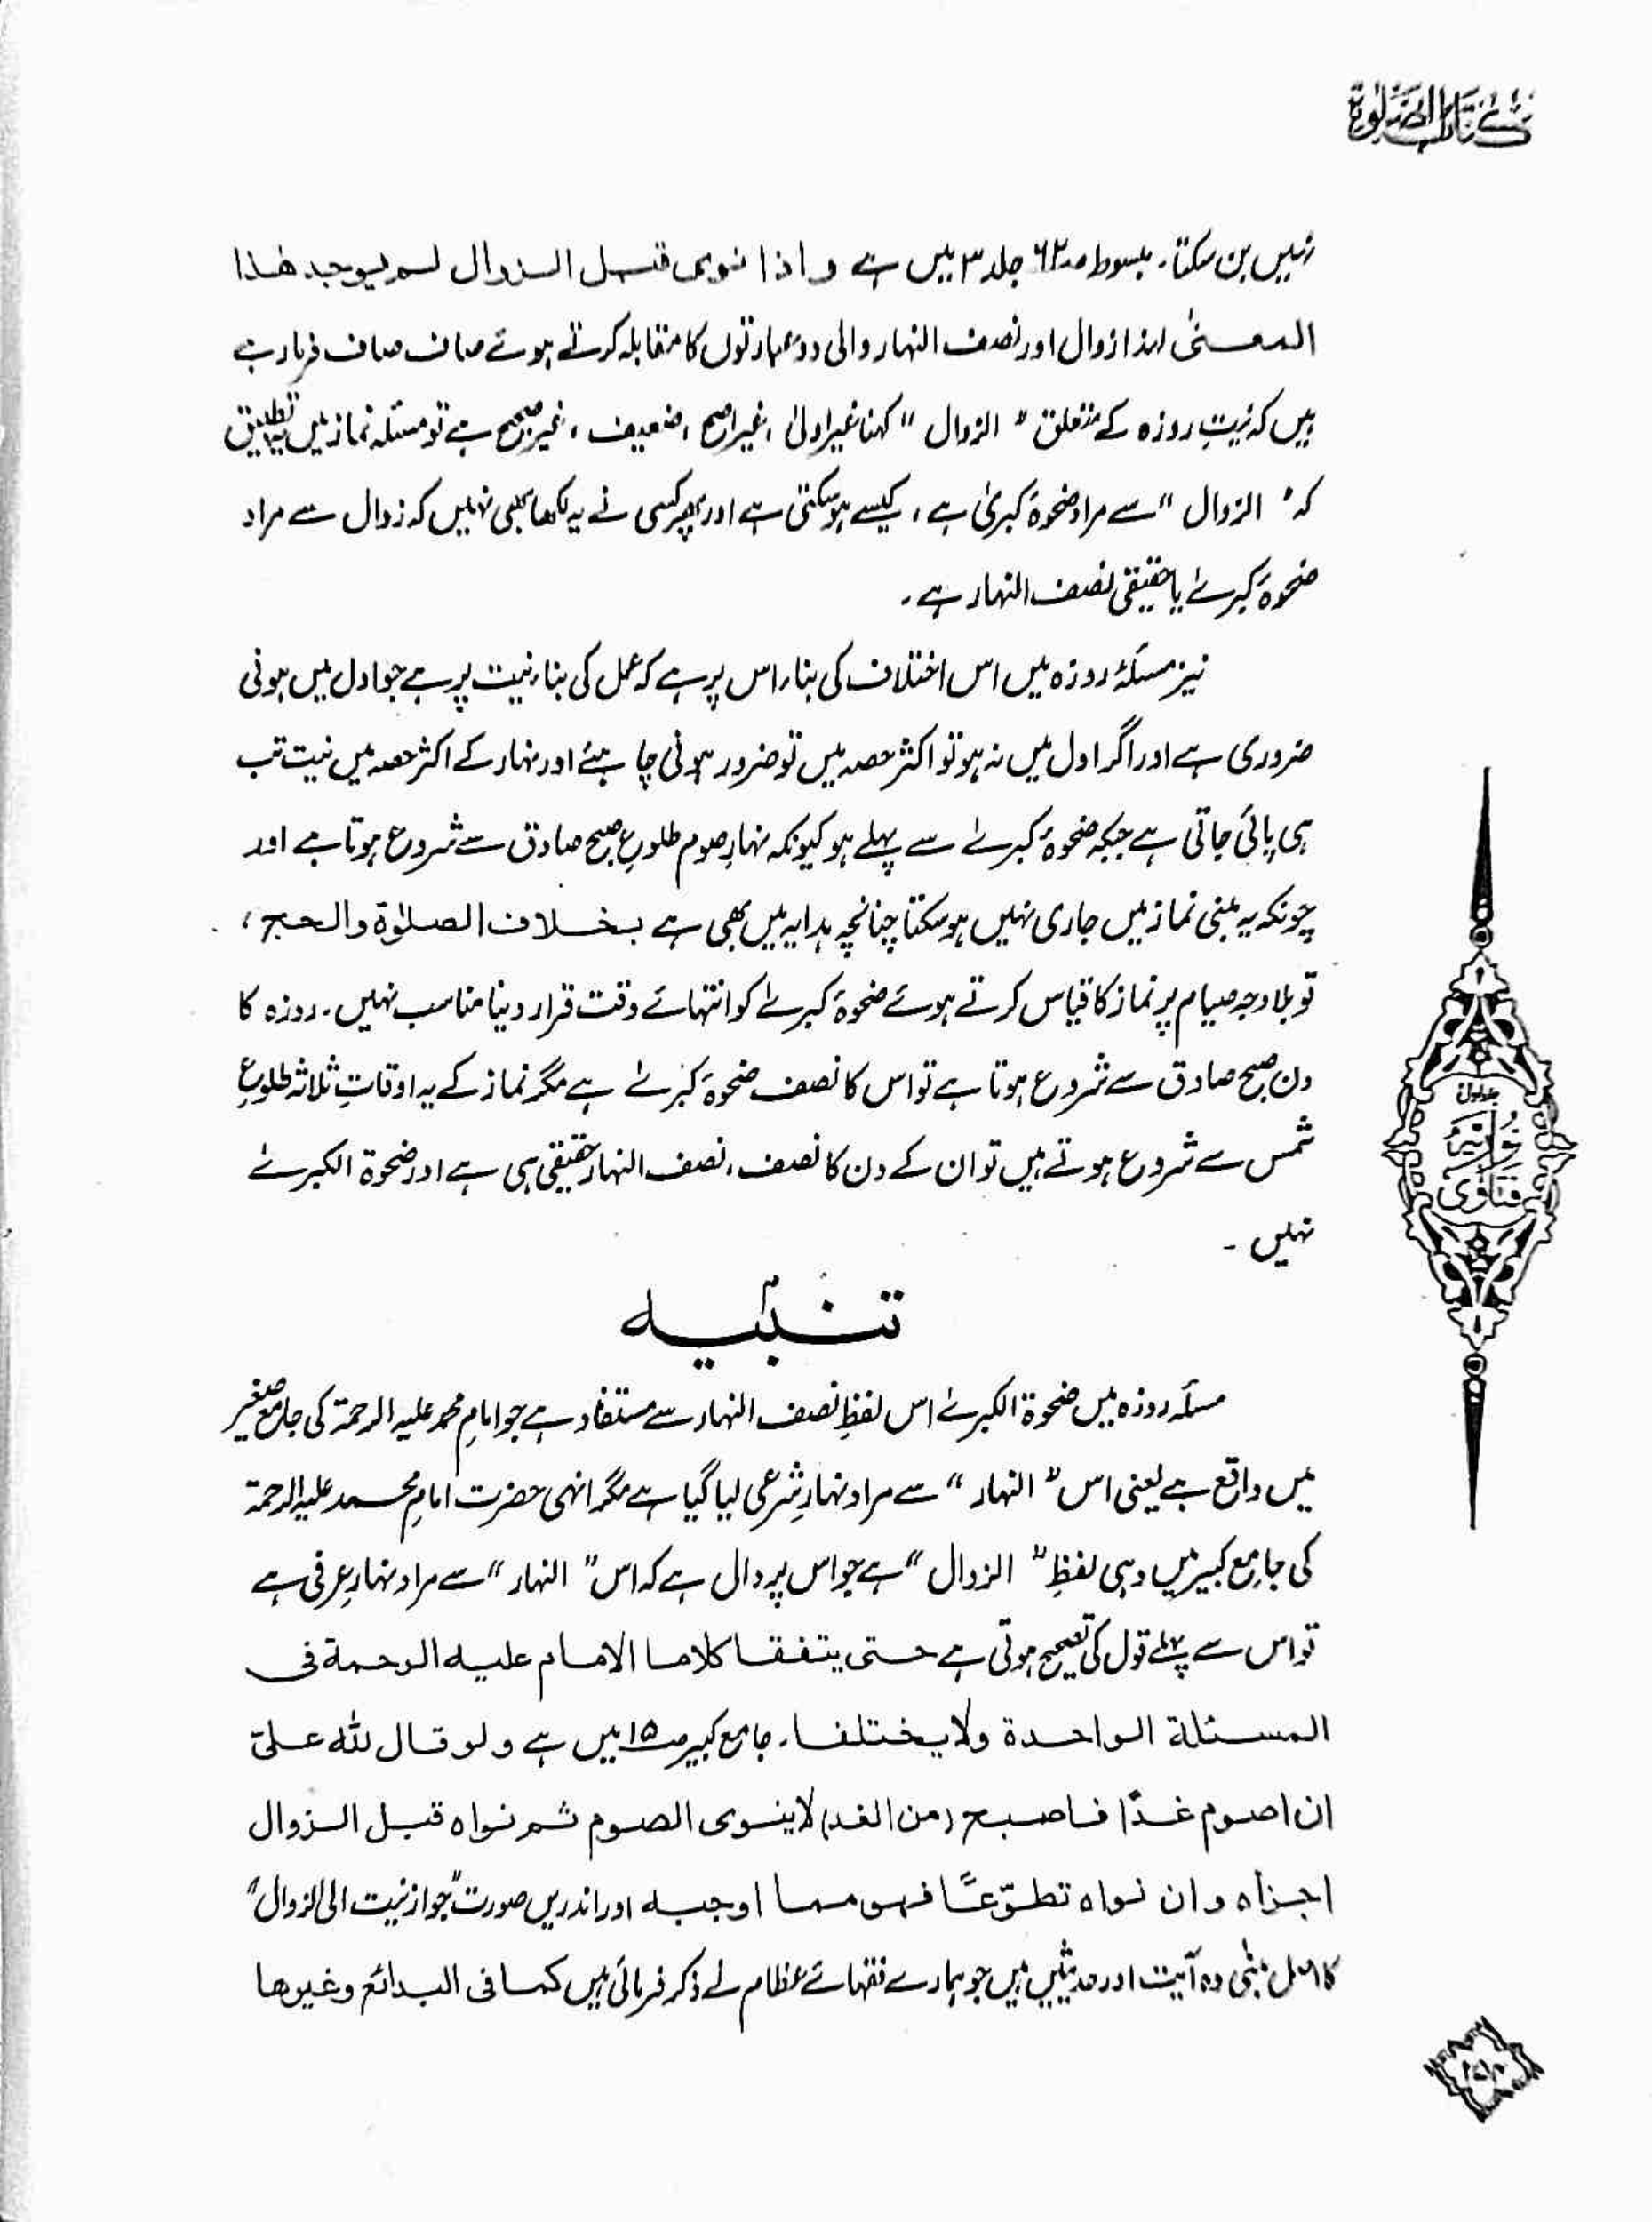 کتاب الصلوٰۃ
نہیں بن سکتا۔ مبسوط صہ ۶۲ جلد ۳ میں ہے واذا نوی قبل الزوال لم یوجد ھٰذا
المعنیٰ لہٰذا زوال اور نصف النہار والی دو عبارتوں کا مقابلہ کرتے ہوئے صاف صاف فرما رہے
ہیں کہ نیتِ روزہ کے متعلق "الزوال" کہنا غیر اولیٰ، غیر اصح، ضعیف، غیر صحیح ہے تو مسئلہ نماز میں یہ تطبیق
کہ "الزوال" سے مراد ضحوۂ کبریٰ ہے، کیسے ہو سکتی ہے اور پھر کسی نے یہ لکھا بھی نہیں کہ زوال سے مراد
ضحوۂ کبرےٰ یا حقیقی نصف النہار ہے۔
نیز مسئلۂ روزہ میں اس اختلاف کی بناء اس پر ہے کہ عمل کی بناء نیت پر ہے جو اول میں ہونی
ضروری ہے اور اگر اول میں نہ ہو تو اکثر حصہ میں تو ضرور ہونی چاہئے اور نہار کے اکثر حصہ میں نیت تب
ہی پائی جاتی ہے جبکہ ضحوۂ کبرےٰ سے پہلے ہو کیونکہ نہارِ صوم طلوعِ صبح صادق سے شروع ہوتا ہے اور
چونکہ یہ مبنی نماز میں جاری نہیں ہو سکتا چنانچہ ہدایہ میں بھی ہے بخلاف الصلوٰۃ والحج،
تو بلا وجہ صیام پر نماز کا قیاس کرتے ہوئے ضحوۂ کبرےٰ کو انتہائے وقت قرار دینا مناسب نہیں۔ روزہ کا
دن صبح صادق سے شروع ہوتا ہے تو اس کا نصف ضحوۂ کبرےٰ ہے مگر نماز کے یہ اوقاتِ ثلاثہ طلوعِ
شمس سے شروع ہوتے ہیں تو ان کے دن کا نصف، نصف النہار حقیقی ہی ہے اور ضحوۃ الکبرےٰ
نہیں۔
تنبیہ
مسئلہ روزہ میں ضحوۃ الکبرےٰ اس لفظِ نصف النہار سے مستفاد ہے جو امامِ محمد علیہ الرحمۃ کی جامع صغیر
میں واقع ہے یعنی اس "النہار" سے مراد نہارِ شرعی لیا گیا ہے مگر انہی حضرت امامِ محمد علیہ الرحمۃ
کی جامع کبیر میں وہی لفظِ "الزوال" ہے جو اس پر دال ہے کہ اس "النہار" سے مراد نہارِ عرفی ہے
تو اس سے پہلے قول کی تصحیح ہوتی ہے حتی یتفقا کلاما الامام علیہ الرحمۃ فی
المسئلۃ الواحدۃ ولا یختلفا۔ جامع کبیر صہ ۱۵ میں ہے ولو قال للّٰہ علیّ
ان اصوم غدًا فاصبح (من الغد) لا ینوی الصوم ثم نواہ قبل الزوال
اجزاہ وان نواہ تطوّعًا فہو مما اوجبہ اور اندریں صورت "جواز نیت الی الزوال"
کا اصل مبنیٰ وہ آیت اور حدیثیں ہیں جو ہمارے فقہائے عظام نے ذکر فرمائی ہیں کما فی البدائع وغیرھا
جلد اول
فتاوٰی نوریہ